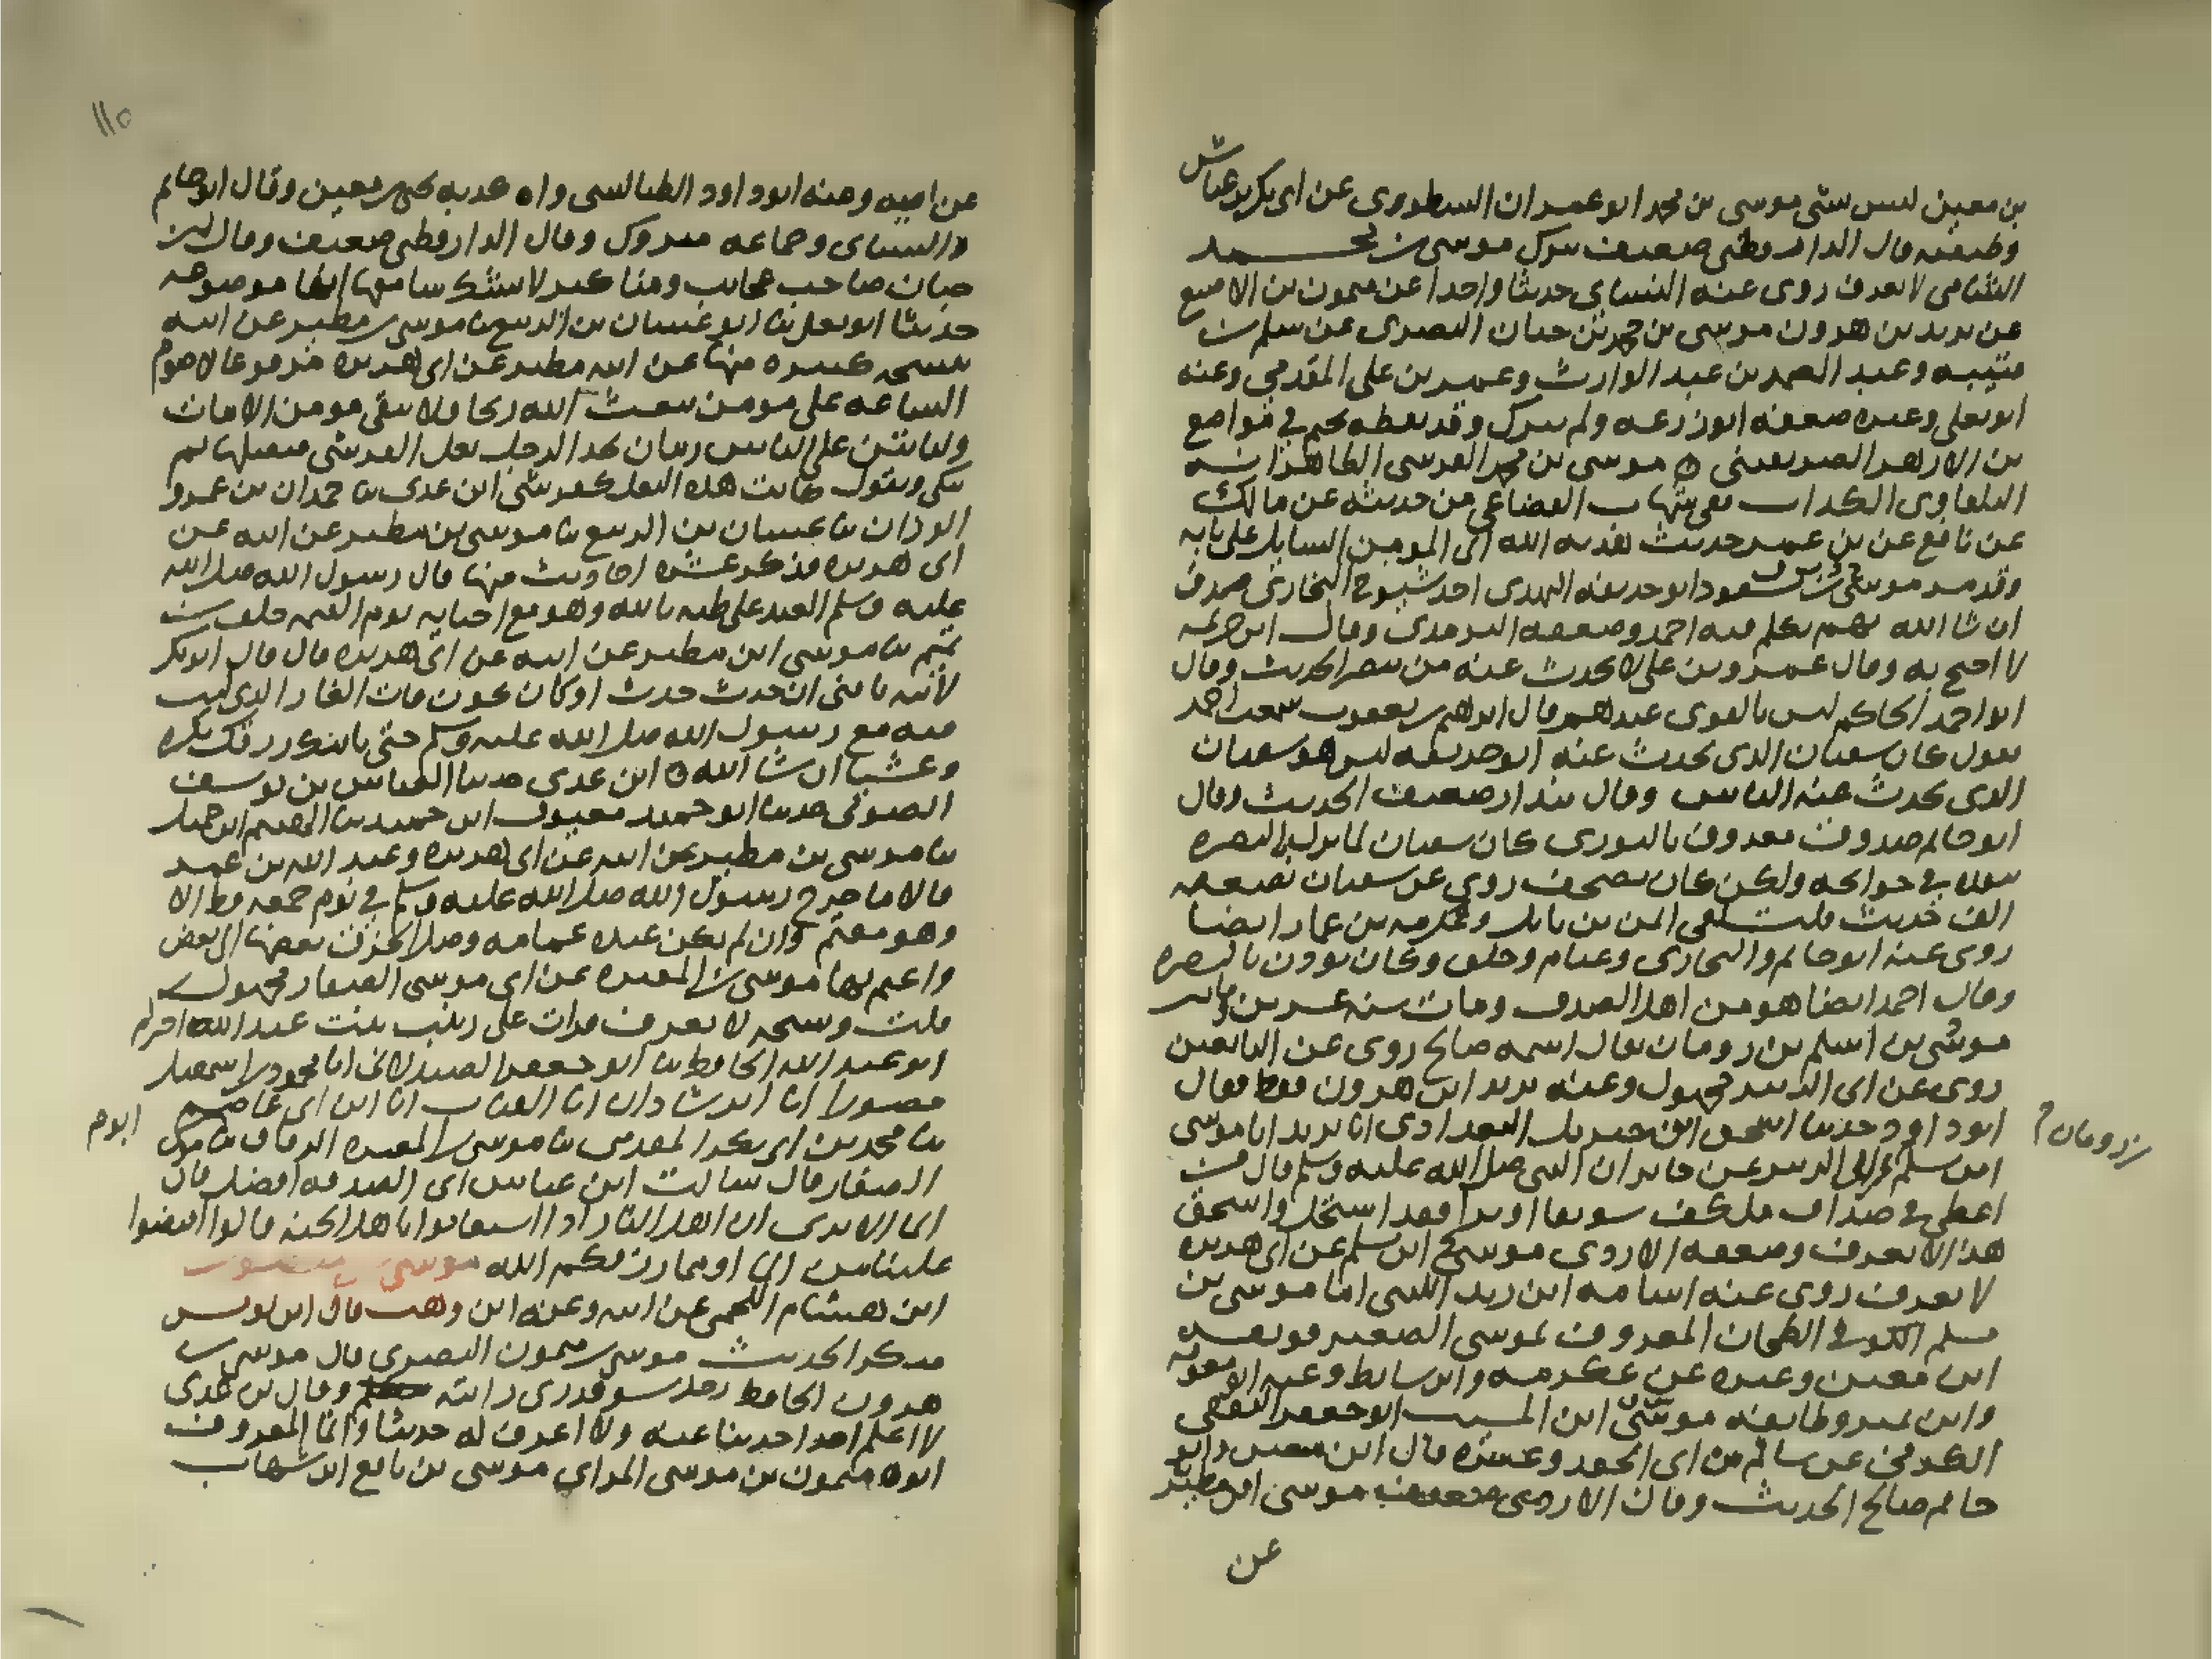 بن معين ليس بشي موسى بن محمد ابو عمران الشطوي عن ابي بكر بن عياش
وطبقته قال الدارقطني ضعيف يترك موسى بن محمد
الشامي لا يعرف روى عنه النساي حديثا واحدا عن ميمون بن الاصبغ
عن يزيد بن هرون موسى بن محمد بن حيان البصري عن سلم بن
قتيبه وعبد الصمد بن عبد الوارث وعمر بن علي المقدمي وعنه
ابو يعلى وغيره ضعفه ابو زرعه ولم يترك وقد في مواضع
بن الازهر موسى بن محمد القرشي
البلقاوي الكذاب ففي شهاب القضاعي من حديثه عن مالك
عن نافع عن بن عمر حديث هديه الله الى المومن السايل على بابه
وقد مر موسى بن مسعود ابو حذيفه النهدي احد شيوخ البخاري صدوق
ان شا الله يهم تكلم فيه احمد وضعفه الترمذي وقال ابن خزيمه
لا احتج به وقال عمرو بن علي لا يحدث عنه من يبصر الحديث وقال
ابو احمد الحاكم ليس بالقوي عندهم وقال ابراهيم بن يعقوب سمعت احمد
يقول كان سفيان الذي يحدث عنه ابو حذيفه ليس هو سفيان
الذي يحدث عنه الناس وقال بندار ضعيف الحديث وقال
ابو حاتم صدوق معروف بالثوري كان سفيان لما نزل البصره
في حوائجه ولكن كان يصحف روى عن سفيان بضعه عشر
الف حديث قلت لقي ايمن بن نابل وعكرمه بن عمار ايضا
روى عنه ابو حاتم والبخاري وتمتام وخلق وكان يودب بالبصره
وقال احمد ايضا هو من اهل الصدق ومات سنه عشرين وماتين
موسى بن اسلم بن رومان يقال اسمه صالح روى عن التابعين
روى عن ابي الزبير مجهول وعنه يزيد ابن هرون فقط فقال
ابو داود حدثنا اسحق ابن جبريل البغدادي انا يزيد انا موسى
بن رومان
ابن سلم عن ابي الزبير عن جابر ان النبي صلى الله عليه وسلم قال من
اعطى في صداق ملء كف سويقا او تمرا فقد استحل واسحق
هذا لا يعرف وضعفه الازدي موسى ابن سلم عن ابي هريره
لا يعرف روى عنه اسامه ابن زيد الليثي اما موسى بن
مسلم الكوفي الطحان المعروف بموسى الصغير فوثقه
ابن معين وغيره عن عكرمه وابن سابط وعنه ابو معويه
وابن نمير وطايفه موسى ابن المسيب ابو جعفر الثقفي
الكوفي عن سالم بن ابي الجعد وغيره قال ابن معين وابو
حاتم صالح الحديث وقال الازدي ضعيف موسى ابن مطير
عن
١١٥
عن ابيه وعنه ابو داود الطيالسي واه كذبه يحيى بن معين وقال ابو حاتم
والنساي وجماعه متروك وقال الدارقطني ضعيف وقال ابن
حبان صاحب عجايب ومناكير لا يشك سامعها انها موضوعه
حدثنا ابو يعلى ثنا ابو غسان بن الربيع ثنا موسى بن مطير عن ابيه
بنسخه كبيره منها عن ابيه مطير عن ابي هريره مرفوعا لا تقوم
الساعه على مومن يبعث الله ريحا فلا يبقى مومن الا مات
وليأتين على الناس زمان يجد الرجل نعل القرشي فيقبلها ثم
يبكي ويقول كانت هذه النعل لقرشي ابن عدي ثنا حمدان بن عمرو
الوزان ثنا غسان بن الربيع ثنا موسى بن مطير عن ابيه عن
ابي هريره فذكر عشره احاديث منها قال رسول الله صلى الله
عليه وسلم العبد على ظنه بالله وهو مع احبابه يوم القيمه خلف بن
تميم ثنا موسى ابن مطير عن ابيه عن ابي هريره قال قال ابو بكر
لابنه يا بني ان حدث حدث او كان كون فات الغار الذي كنت
فيه مع رسول الله صلى الله عليه وسلم حتى ياتيك رزقك بكره
وعشيا ان شا الله ابن عدي حدثنا العباس بن يوسف
الصوفي حدثنا ابو حميد معيوف ابن حميد ثنا الهيثم ابن جميل
ثنا موسى بن مطير عن ابيه عن ابي هريره وعبد الله بن عمر
قالا ما خرج رسول الله صلى الله عليه وسلم في يوم جمعه قط الا
وهو معتم وان لم يكن عنده عمامه وصل الخرق بعضها الى بعض
واعتم بها موسى بن المغيره عن ابي موسى الصفار مجهول
قلت وشيخه لا يعرف قرات على زينب بنت عبد الله اخبركم
ابو عبد الله الحافظ ثنا ابو جعفر الصيدلاني انا محمود بن اسمعيل
حضورا انا ابن شاذان انا القباب انا ابن ابي عاصم
ثنا محمد بن ابي بكر المقدمي ثنا موسى بن المغيره ثنا ابو موسى
الصفار قال سالت ابن عباس اي الصدقه افضل قال
الما الا ترى ان اهل النار اذا استغاثوا باهل الجنه قالوا افيضوا
علينا من الما او مما رزقكم الله موسى بن منصور
ابن هشام اللخمي عن ابيه وعنه ابن وهب قال ابن يونس
منكر الحديث موسى بن ميمون البصري قال موسى بن
هرون الحافظ رجل سو قدري رايته وقال بن عدي
لا اعلم احدا حدثنا عنه ولا اعرف له حديثا وانما المعروف
ابوه ميمون بن موسى المراي موسى بن نافع ابو شهاب